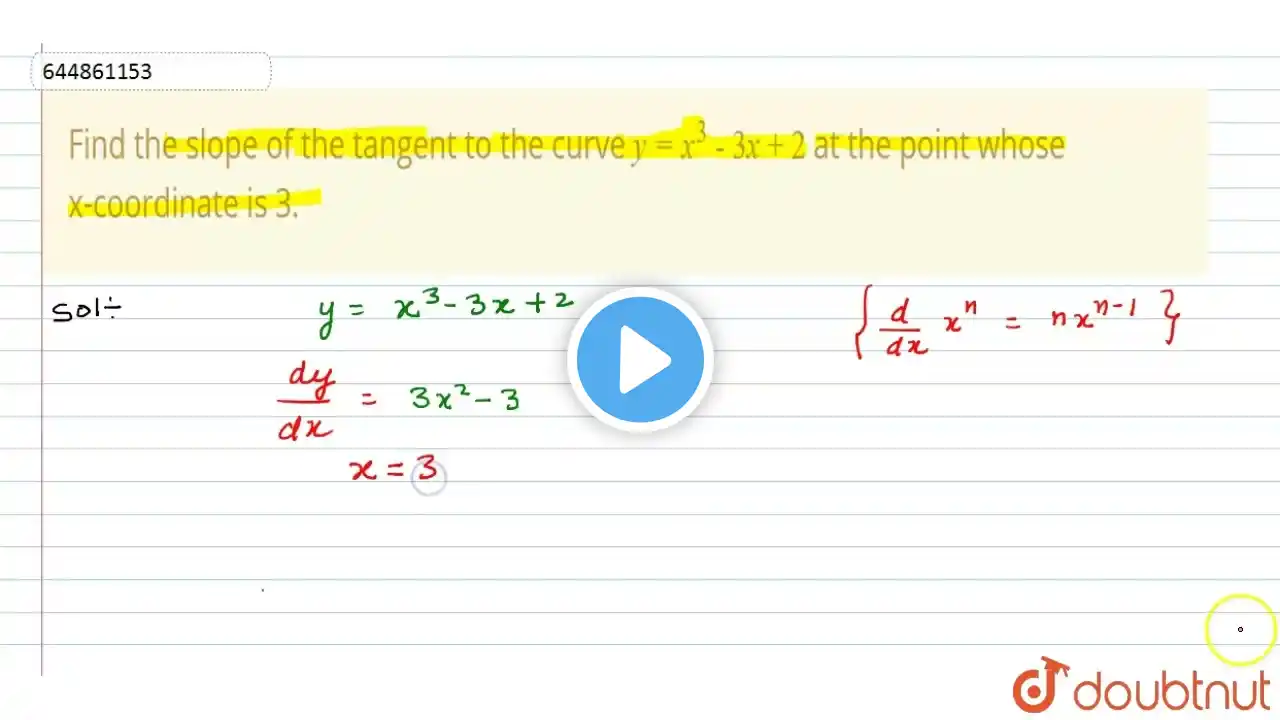 644861153
Find the slope of the tangent to the curve y = x³ - 3x + 2 at the point whose
x-coordinate is 3.
Sol÷ y = x³ - 3x + 2 { d/dx xⁿ = nxⁿ⁻¹ }
dy/dx = 3x² - 3
x = 3
doubtnut